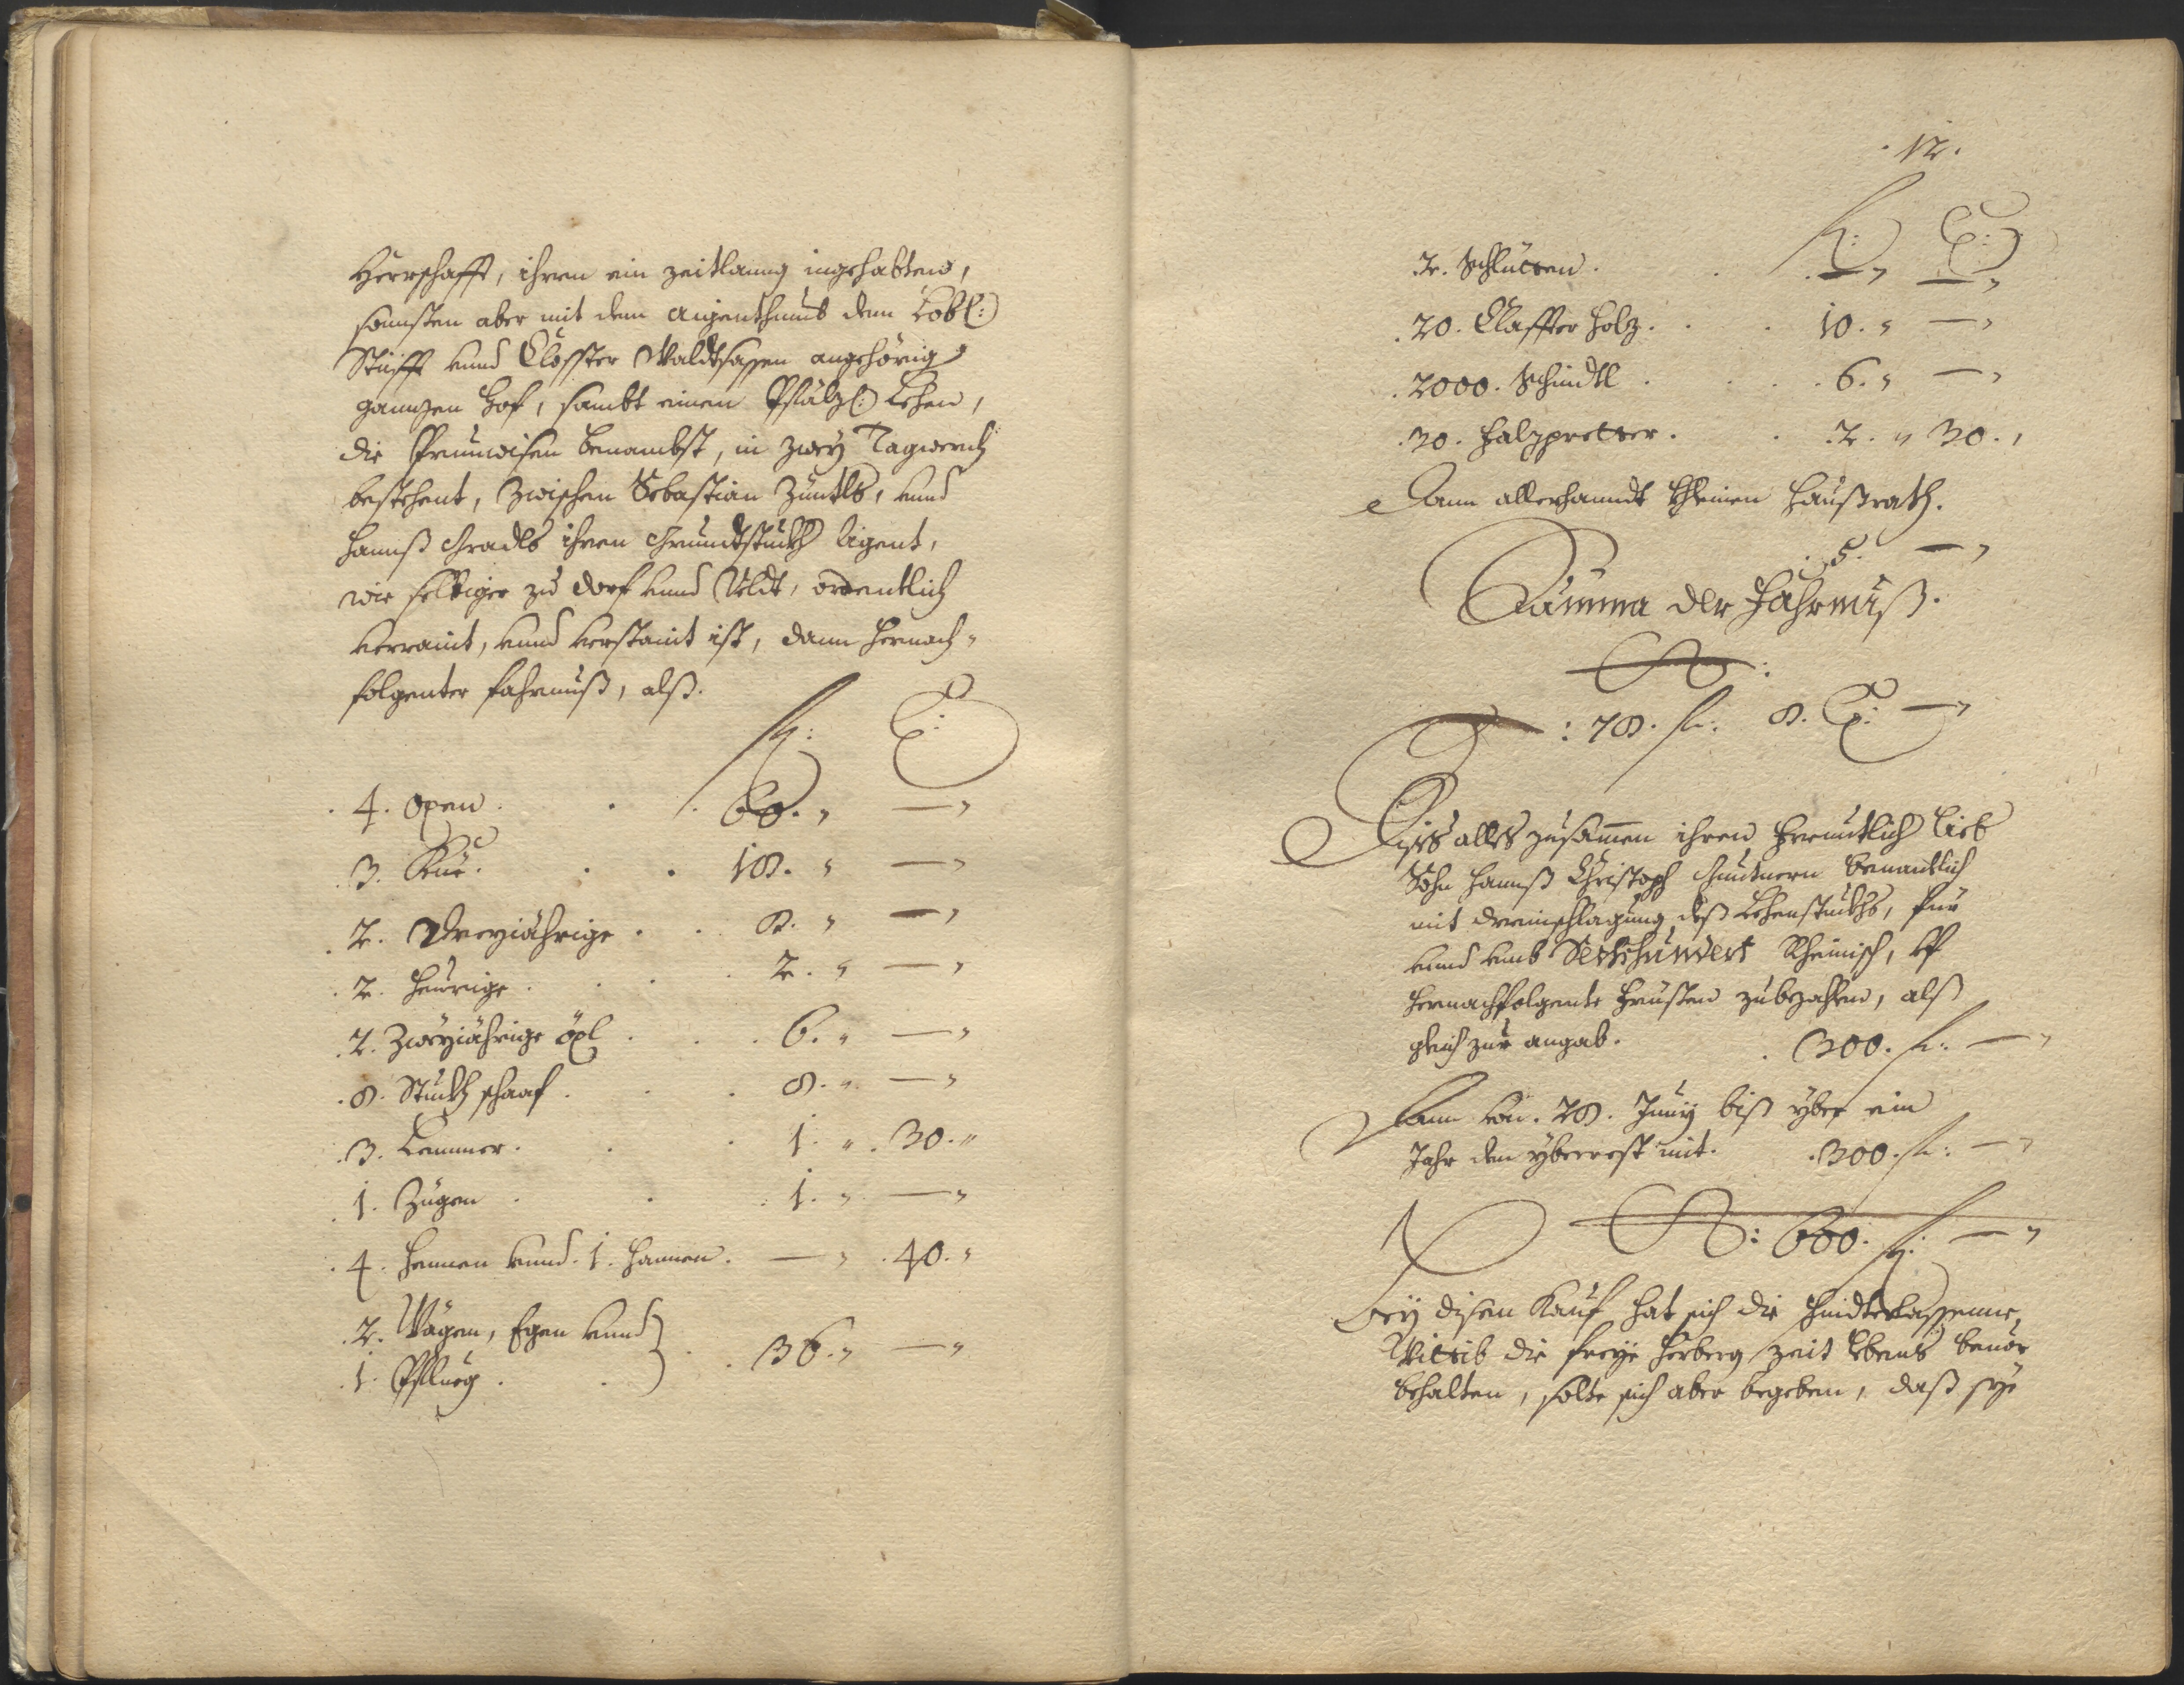 Herrschafft, ihren ein zeitlanng ingehabten,
sonnsten aber mit dem aigenthumb dem Löbl:
Stüfft vnnd Closster Waldtsassen angehörig
gannzen Hof, sambt einen Pfälzl: Lehen,
die Prunwisen benambst, in zwey Tagwerch
bestehent, zwischen Sebastian Züntls, vnnd
Hannß Gradls ihren Grundtstückh ligent,
wie selbiger zu Dorf vnnd Veldt, ordentlich
verraint, vnnd verstaint ist, dann hernach-
folgenter fahrnuß, alß.
fl: x:
.4. Oxen . . . 60. " — "
.3. Küe . . . 18. " — "
.2. Dreyjährige . . 8. " — "
.2. Heurige . . . 2. " — "
.2. Zweyjährige öxl . . 6. " — "
.8. Stuckh schaaf . . 8. " — "
.3. Lemmer . . . 1. " 30. "
.1. Zügen . . . 1. " — "
.4. Hennen vnnd .1. Hannen . — " 40. "
.2. Wägen, Egen vnnd
.1. Pflueg . . . 36. " — "
.12.
fl: x:
.2. Schlütten . . — " — "
.20. Claffter Holz . . 10. " — "
.2000. Schindl . . . 6. " — "
.30. Falzpretter . . 2. " 30. "
Dann allerhanndt khleinen Haußrath.
. 5. — "
Summa der Fahrnuß.
: 78. fl: 8. x: — "
Diss alles zusammen ihren freuntlich lieb
Sohn Hannß Christoph benantlich
mit dreinschlagung deß Lehenstuckhs, für
vnnd vmb Sechshundert Rheinisch, vf
hernachfolgente Fristen zubezahlen, alß
gleich zur angab. . 300. fl: — "
Dann von .28. Juny biß yber ein
Jahr den yberrest mit. .300. fl: — "
S: 600. fl: — "
Bey disen Kauf hat sich die hindterlassenne,
Wittib die freye Herberg zeit lebens beuor
behalten, solte sich aber begeben, daß sye